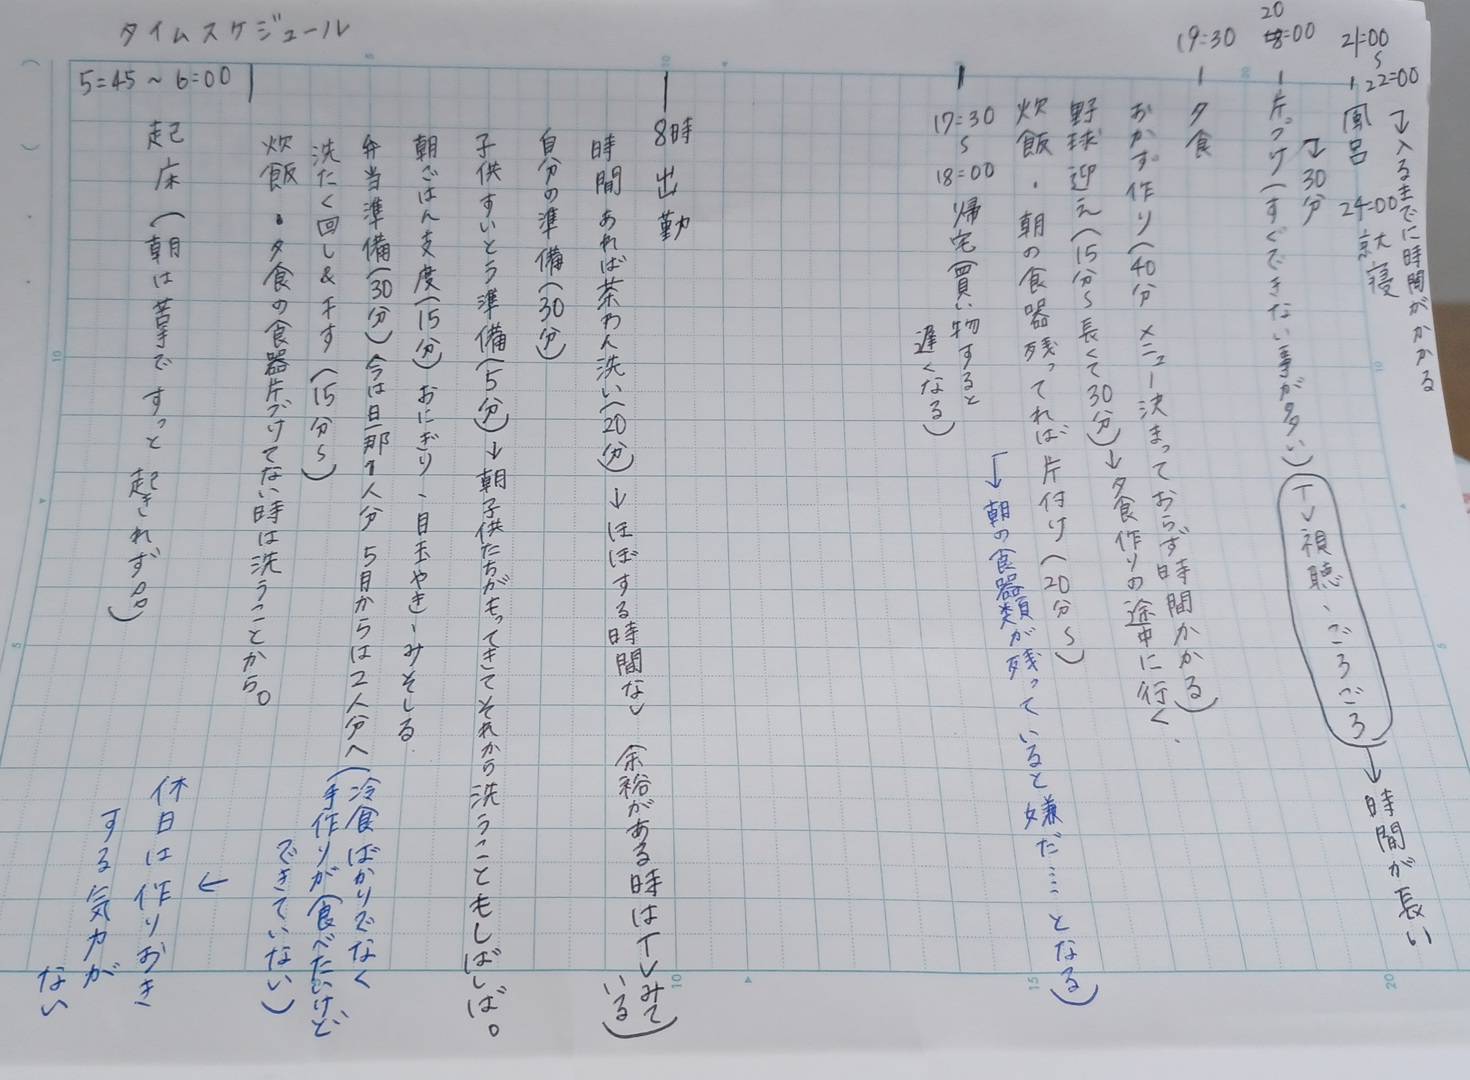 タイムスケジュール
5:45~6:00
起床(朝は苦手ですっと
起きれず。)
炊飯・夕食の食器片づけてない時は洗うことから。
洗たく回し&干す(15分~)
弁当準備(30分)今は旦那1人分 5月からは2人分へ
(冷食ばかりでなく
手作りが(食べたいけど
できていない)
↓
休日は作りおき
する気力が
ない
朝ごはん支度(15分)おにぎり、目玉やき、みそしる
子供すいとう準備(5分)→朝子供たちがもってきてそれから洗うこともしばしば。
自分の準備(30分)
時間あれば茶わん洗い(20分)→ほぼする時間なし 余裕がある時はTVみて
いる)
8時 出勤
17:30
~
18:00 帰宅(買い物すると
遅くなる)
炊飯・朝の食器残ってれば片付け(20分~)
→朝の食器類が残っていると嫌だ……となる)
野球迎え(15分~長くて30分)→夕食作りの途中に行く、
おかず作り(40分 メニュー決まっておらず時間かかる)
19:30
夕食
20:00
片づけ(すぐできない事が多い)
→30分
TV視聴、ごろごろ→時間が長い
21:00
~
22:00
風呂
→入るまでに時間がかかる
24:00 就寝